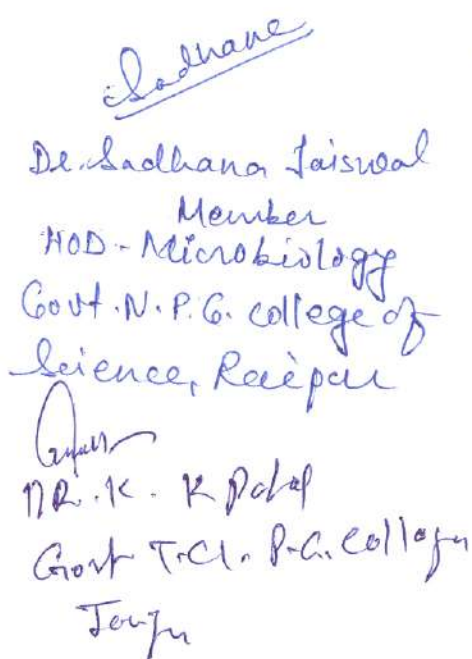 Sadhana
Dr. Sadhana Jaiswal
Member
HOD - Microbiology
Govt. N. P. G. college of
Science, Raipur
DR. K. K Patel
Govt T.C.L. P.G. College